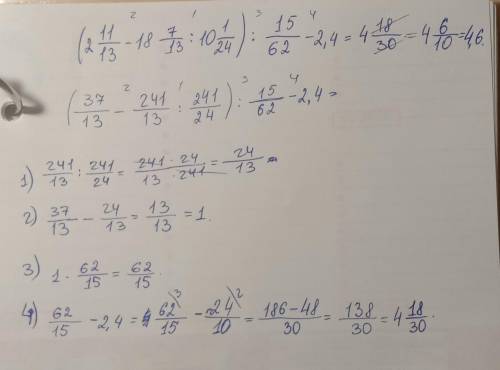 (2 11/13 - 18 7/13 : 10 1/24) : 15/62 - 2,4 = 4 18/30 = 4 6/10 = 4,6.
(37/13 - 241/13 : 241/24) : 15/62 - 2,4 =
1) 241/13 : 241/24 = 241 · 24/13 · 241 = 24/13
2) 37/13 - 24/13 = 13/13 = 1.
3) 1 · 62/15 = 62/15.
4) 62/15 - 2,4 = 62\3/15 - 24\2/10 = 186-48/30 = 138/30 = 4 18/30.